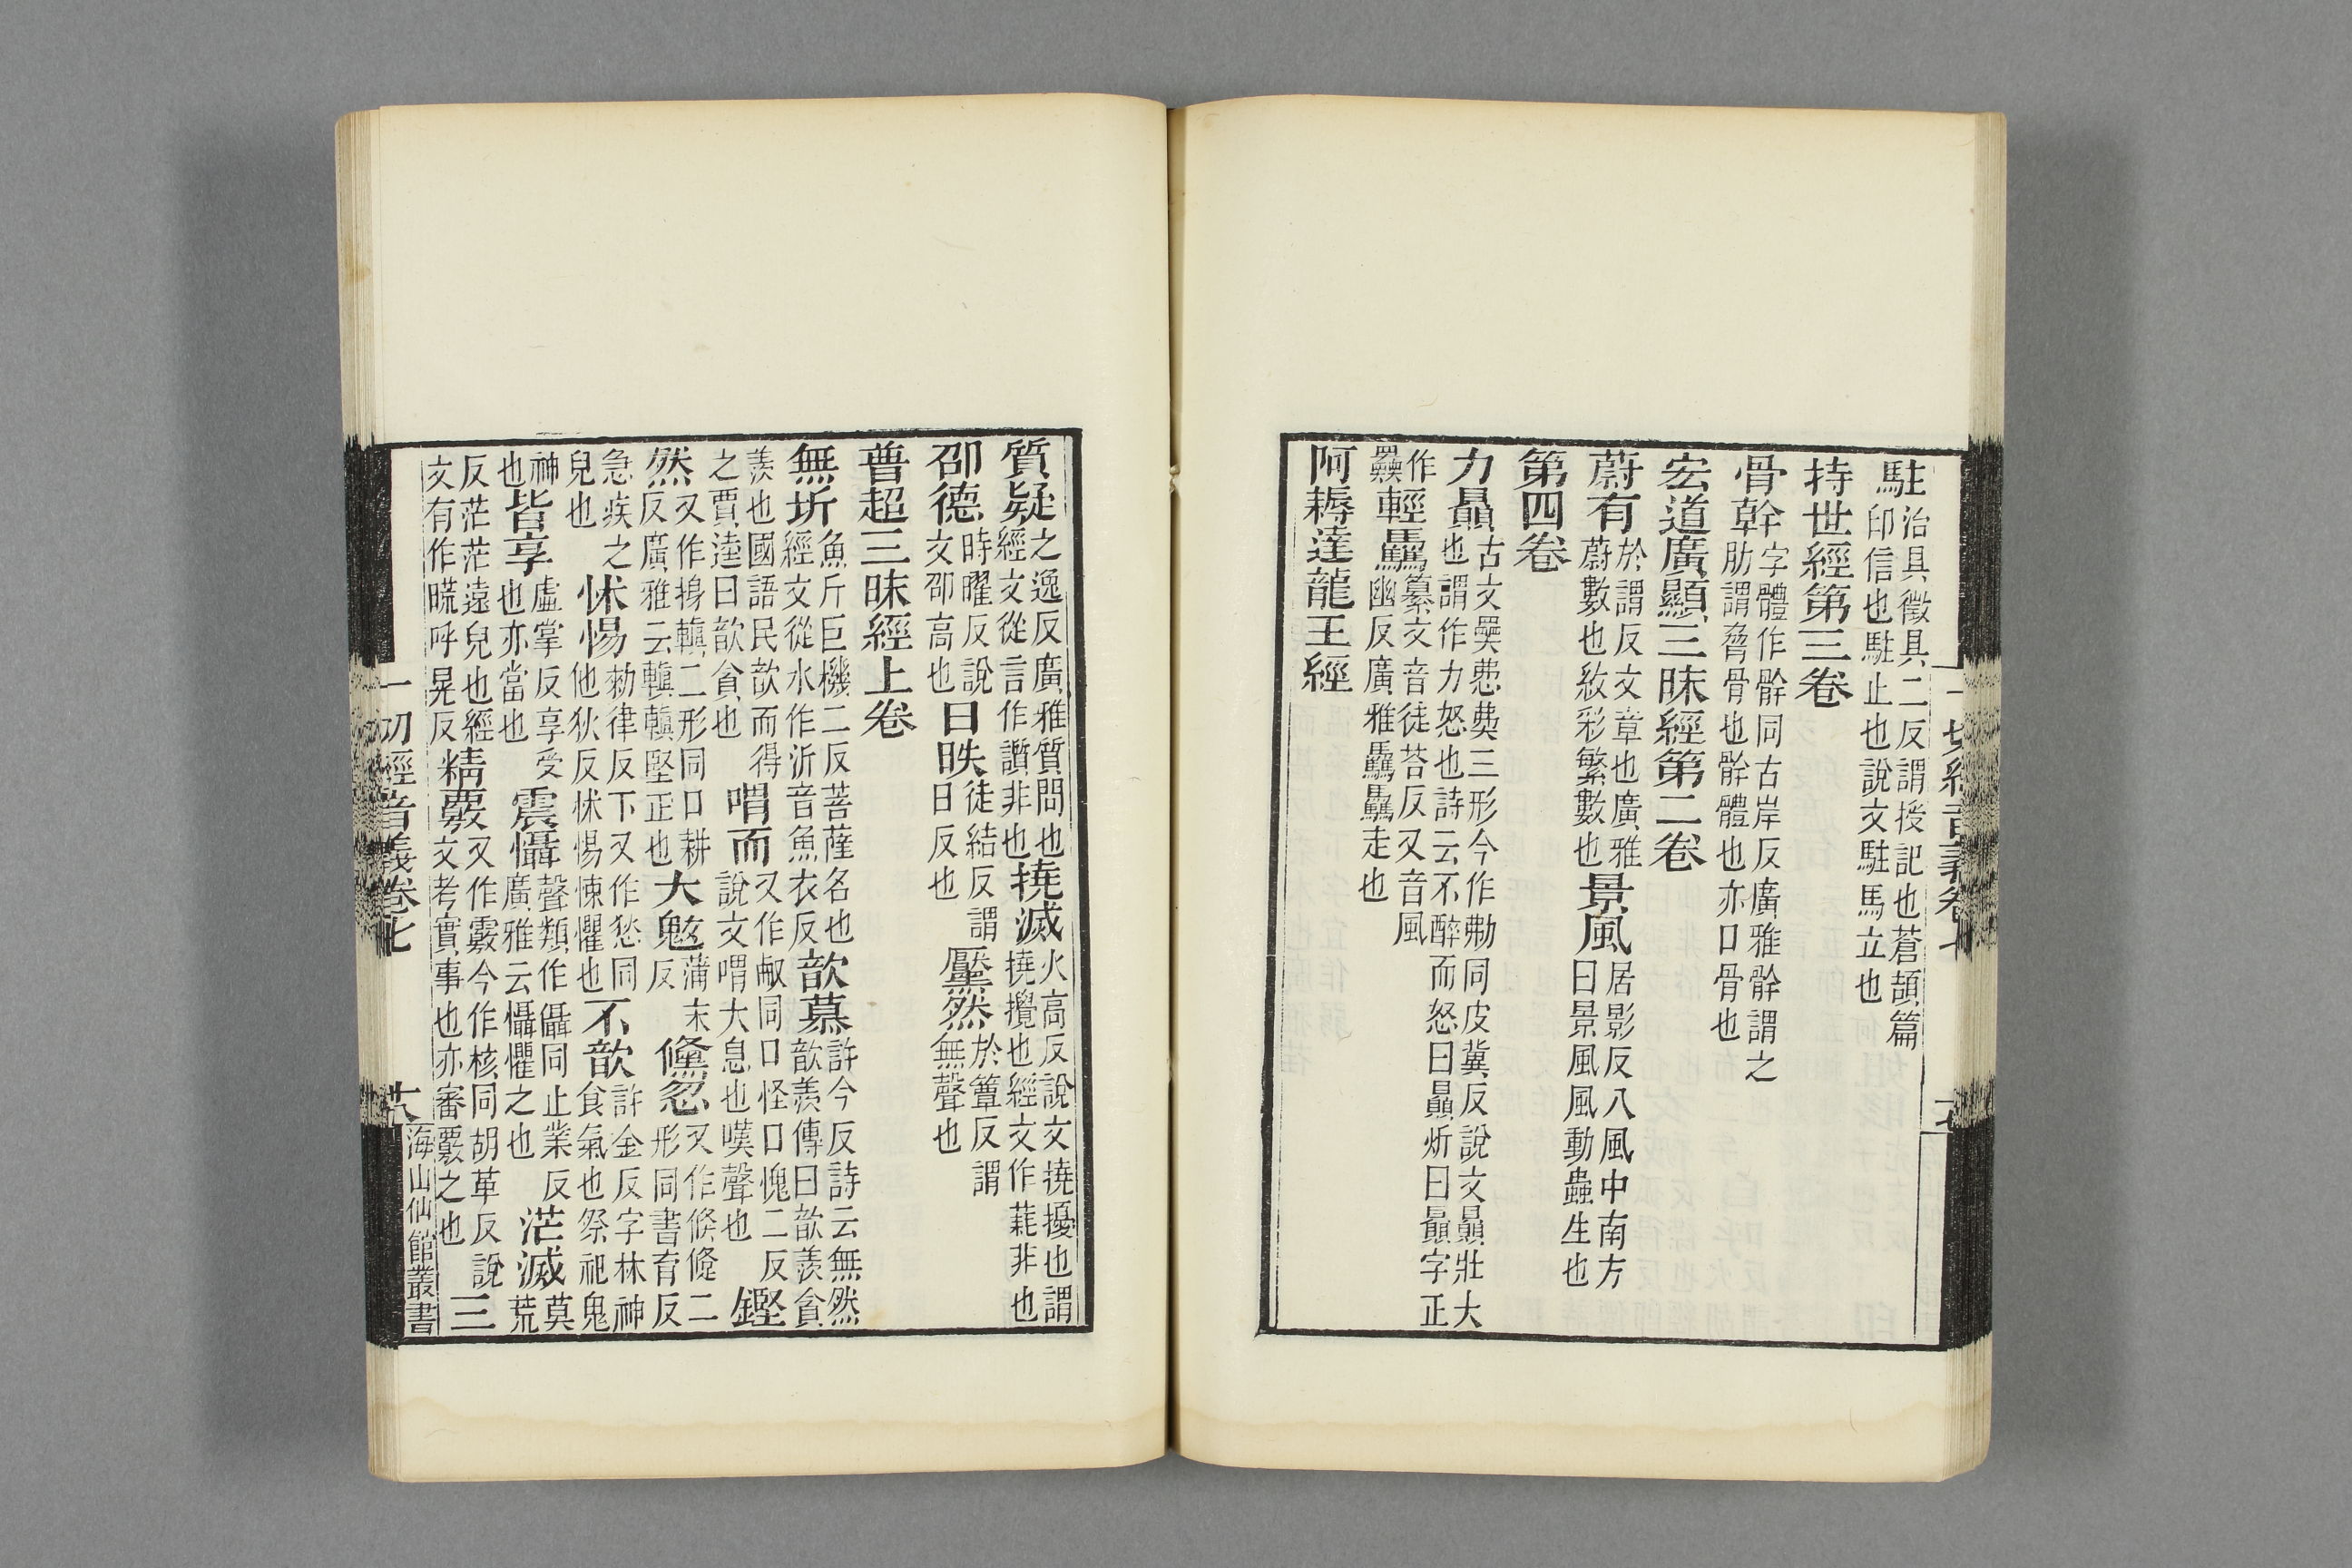 駐治具徵具二反謂授記也蒼頡篇
印信也駐止也說文駐馬立也
持世經第三卷
骨幹字體作骭同古岸反廣雅骭謂之
肋謂脅骨也骭體也亦口骨也
宏道廣顯三昧經第二卷
蔚有於謂反文章也廣雅
蔚數也紋彩繁數也
景風居影反八風中南方
曰景風風動蟲生也
第四卷
力贔古文奰㥜㢢三形今作勫同皮冀反說文贔壯大
也謂作力怒也詩云不醉而怒曰贔炘曰贔字正
作
奰
輕驫纂文音徒荅反又音風
幽反廣雅驫驫走也
阿耨達龍王經
一切經音義卷七
質疑之逸反廣雅質問也
經文從言作讚非也
撓滅火高反說文撓擾也謂
撓攪也經文作薧非也
邵德時曜反說
文邵高也
日昳徒結反謂
日反也
黶然於簟反謂
無聲也
普超三昧經上卷
無圻魚斤巨機二反菩薩名也
經文從水作沂音魚衣反
歆慕許今反詩云無然
歆羨傳曰歆羨貪
羨也國語民歆而得
之賈逵曰歆貪也
喟而又作㕟同口怪口愧二反
說文喟大息也嘆聲也
鏗
然又作摼轒二形同口耕
反廣雅云轒轒堅正也
大魃蒲末
反
儵忽又作倏儵二
形同書育反
急疾之
皃也
怵惕勑律反下又作愁同
他狄反怵惕悚懼也
不歆許金反字林神
食氣也祭祀鬼
神
也
皆享虛掌反享受
也亦當也
震懾聲類作㒤同止業反
廣雅云懾懼之也
茫滅莫
荒
反茫茫遠皃也經
文有作㬻呼晃反
精覈又作覈今作核同胡革反說
文考實事也亦審覈之也
三
一切經音義卷七
十八
海山仙館叢書